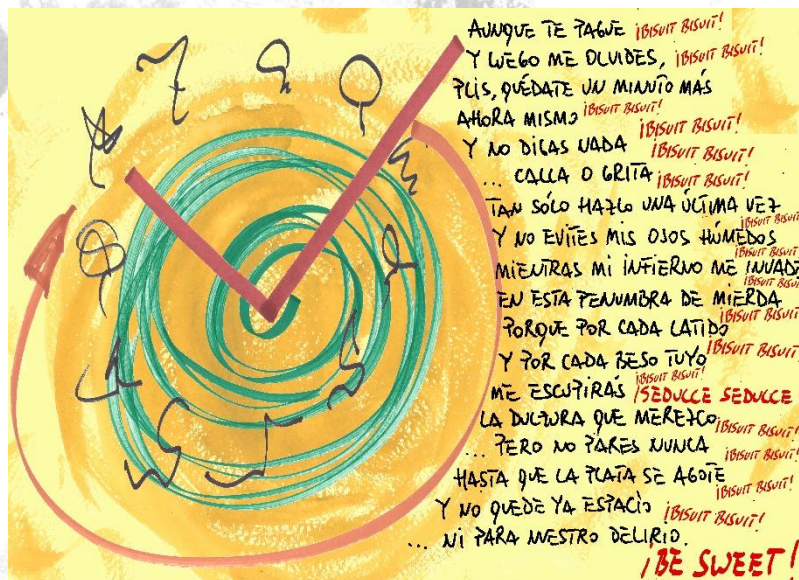 AUNQUE TE PAGUE ¡BISUIT BISUIT!
Y LUEGO ME OLVIDES, ¡BISUIT BISUIT!
PLIS, QUÉDATE UN MINUTO MÁS
AHORA MISMO ¡BISUIT BISUIT!
Y NO DIGAS NADA ¡BISUIT BISUIT!
¡BISUIT BISUIT!
... CALLA O GRITA ¡BISUIT BISUIT!
TAN SÓLO HAZLO UNA ÚLTIMA VEZ
¡BISUIT BISUIT!
Y NO EVITES MIS OJOS HÚMEDOS
¡BISUIT BISUIT!
MIENTRAS MI INFIERNO ME INVADE
¡BISUIT BISUIT!
EN ESTA PENUMBRA DE MIERDA
¡BISUIT BISUIT!
PORQUE POR CADA LATIDO
Y POR CADA BESO TUYO ¡BISUIT BISUIT!
¡BISUIT BISUIT!
ME ESCUPIRÁS ¡SEDUCCE SEDUCCE
LA DULZURA QUE MEREZCO ¡BISUIT BISUIT!
... PERO NO PARES NUNCA ¡BISUIT BISUIT!
HASTA QUE LA PLATA SE AGOTE
¡BISUIT BISUIT!
Y NO QUEDE YA ESPACIO ¡BISUIT BISUIT!
... NI PARA NUESTRO DELIRIO.
¡BE SWEET!